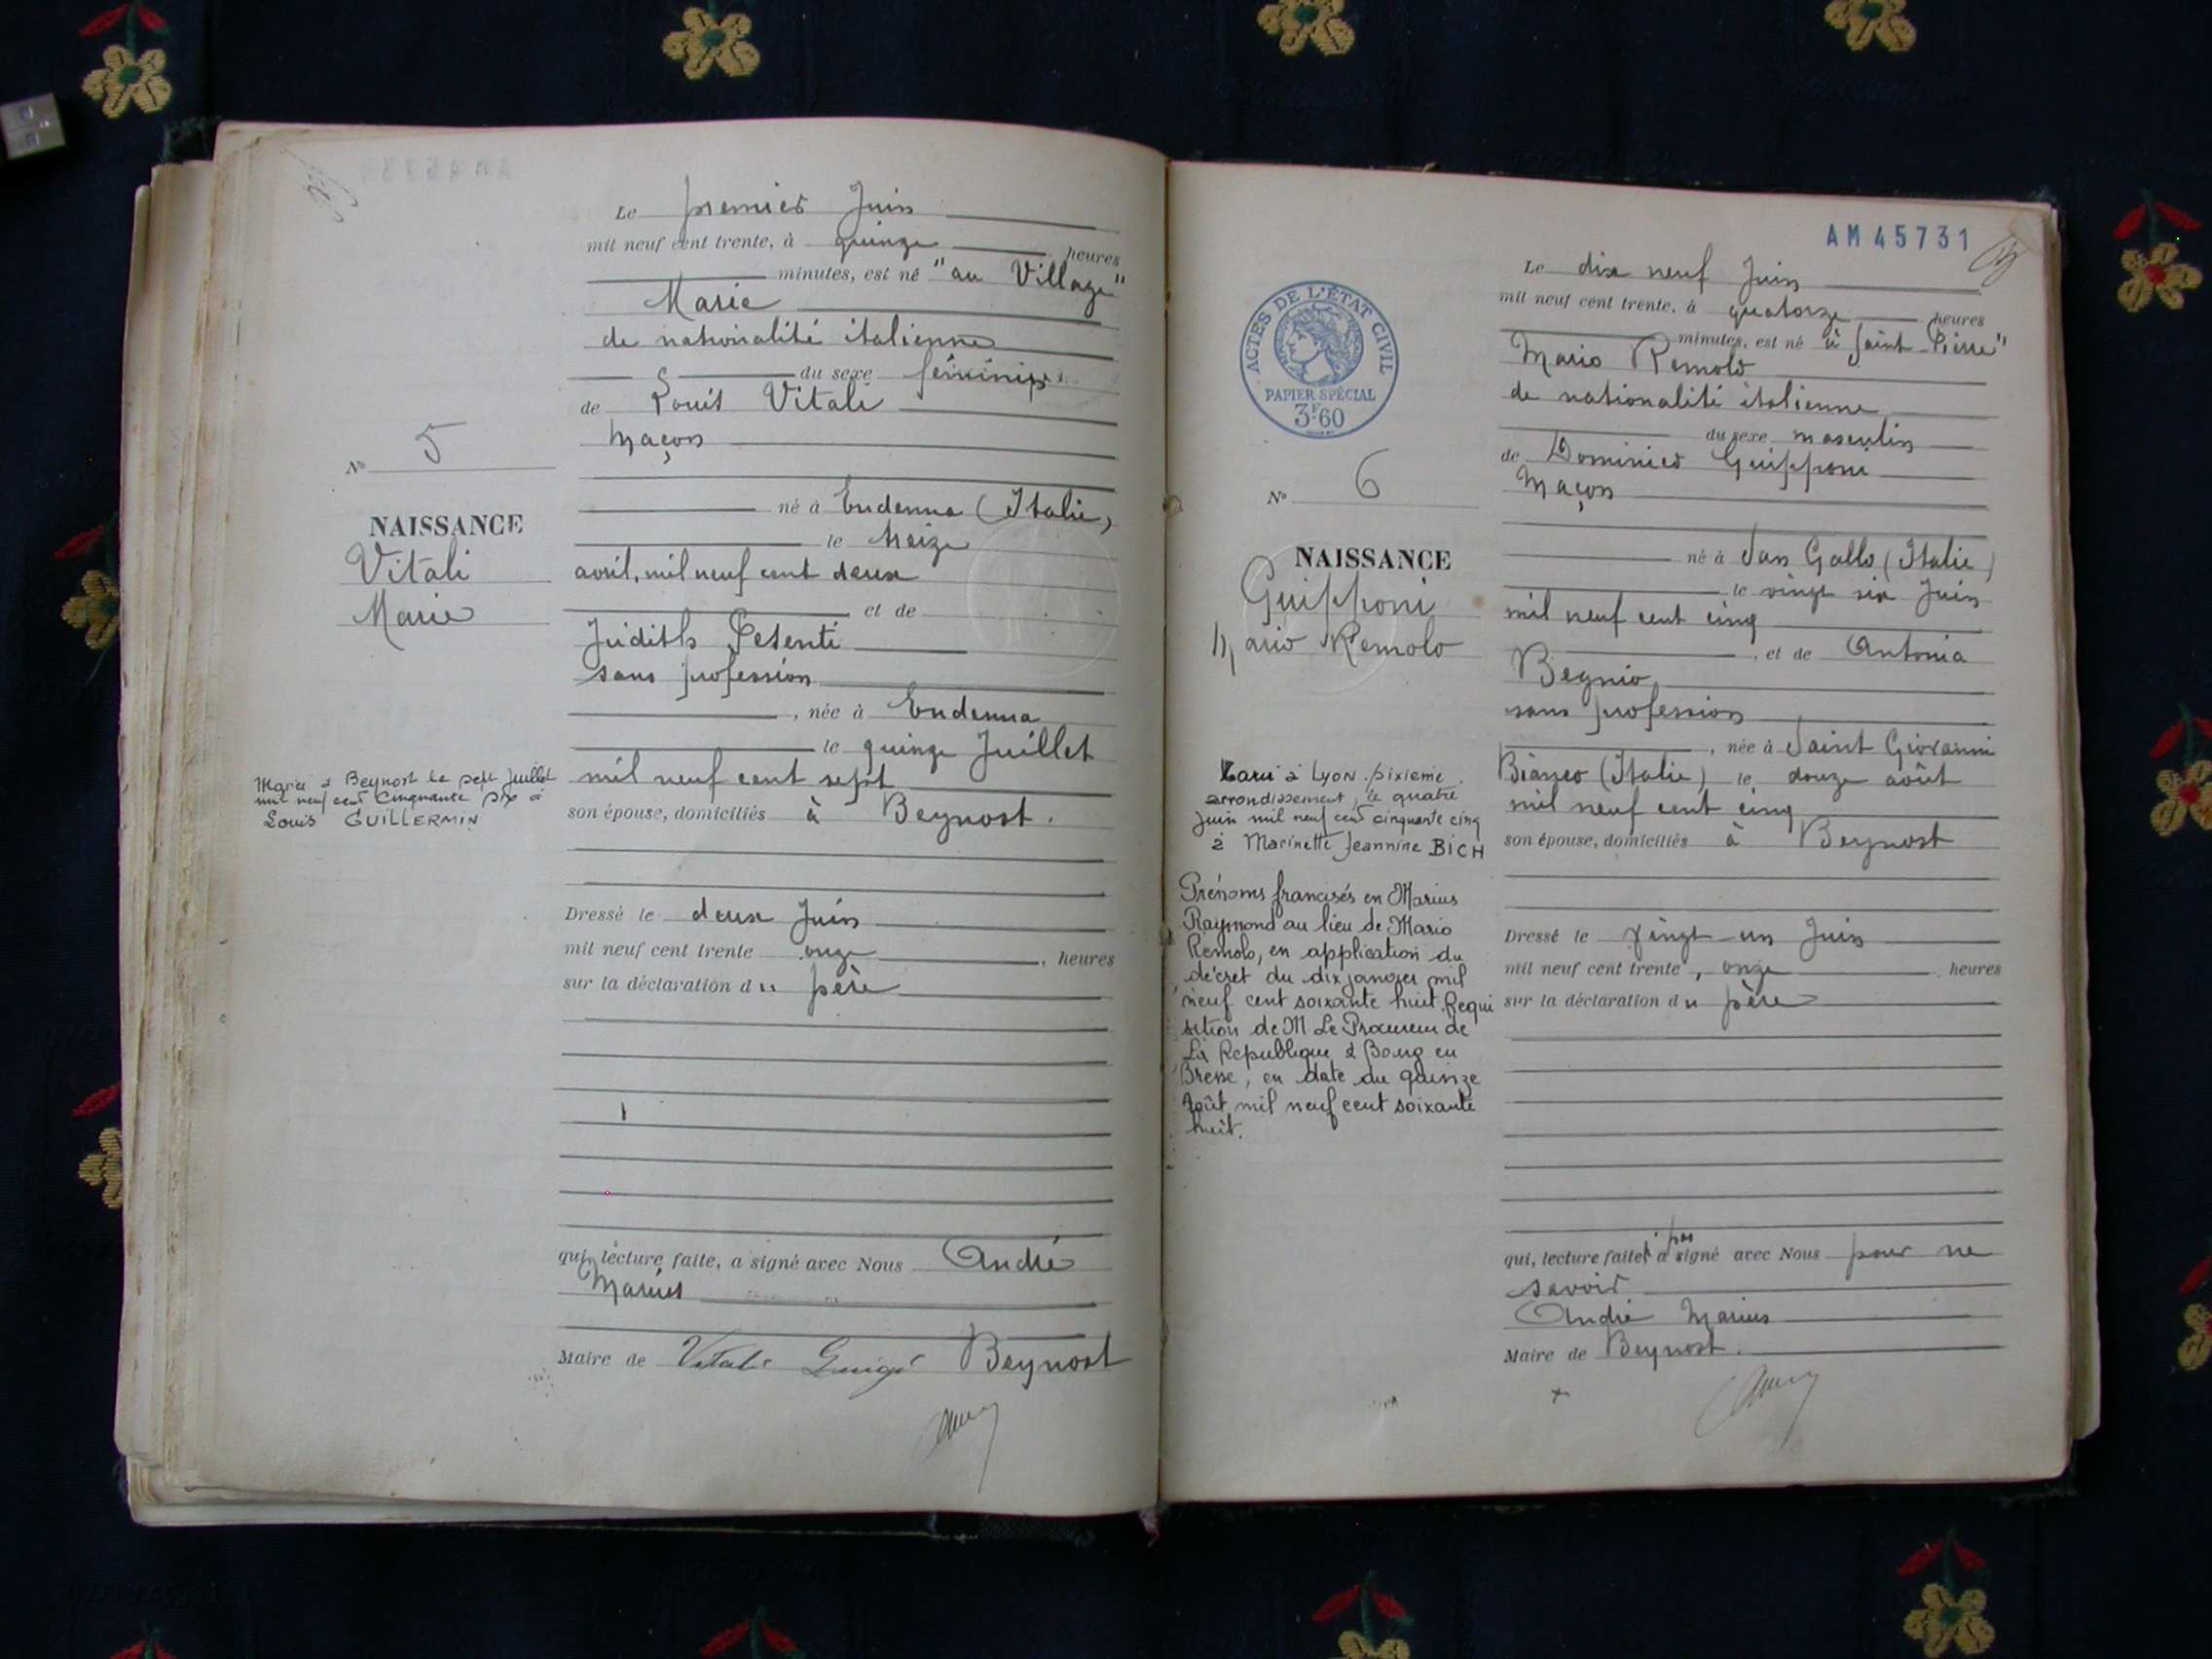 Le premier Juin
mil neuf cent trente, à quinze heures
minutes, est né "au Village"
Marie
de nationalité italienne
du sexe féminin
de Louis Vitali
Maçon
né à Endenna (Italie)
le treize
avril, mil neuf cent deux
et de
Judith Pesenti
sans profession
, née à Endenna
le quinze Juillet
mil neuf cent sept
son épouse, domiciliés à Beynost.
Dressé le deux Juin
mil neuf cent trente onze, heures
sur la déclaration du père
qui, lecture faite, a signé avec Nous André
Marius
Maire de Vitali Luigi Beynost
N° 5
NAISSANCE
Vitali
Marie
Mariée à Beynost le sept juillet
mil neuf cent cinquante six à
Louis GUILLERMIN
AM 45731
Le dix neuf Juin
mil neuf cent trente, à quatorze heures
minutes, est né à Saint-Pierre"
Mario Remolo
de nationalité italienne
du sexe masculin
de Dominico Guipponi
Maçon
né à San Gallo (Italie)
le vingt six Juin
mil neuf cent cinq
, et de Antonia
Begnio
sans profession
, née à Saint Giovanni
Bianco (Italie) le douze août
mil neuf cent cinq
son épouse, domiciliés à Beynost
Dressé le vingt-un Juin
mil neuf cent trente, onze heures
sur la déclaration du père
qui, lecture faite, n'a pas signé avec Nous pour ne
savoir
André Marius
Maire de Beynost.
ACTES DE L'ÉTAT CIVIL
PAPIER SPÉCIAL
3F60
N° 6
NAISSANCE
Guipponi
Mario Remolo
Marié à Lyon sixième
arrondissement, le quatre
juin mil neuf cent cinquante cinq
à Marinette Jeannine BICH
Prénoms francisés en Marius
Raymond au lieu de Mario
Remolo, en application du
décret du dix janvier mil
neuf cent soixante huit. Requi
sition de M Le Procureur de
La République à Bourg en
Bresse, en date du quinze
Août mil neuf cent soixante
huit.